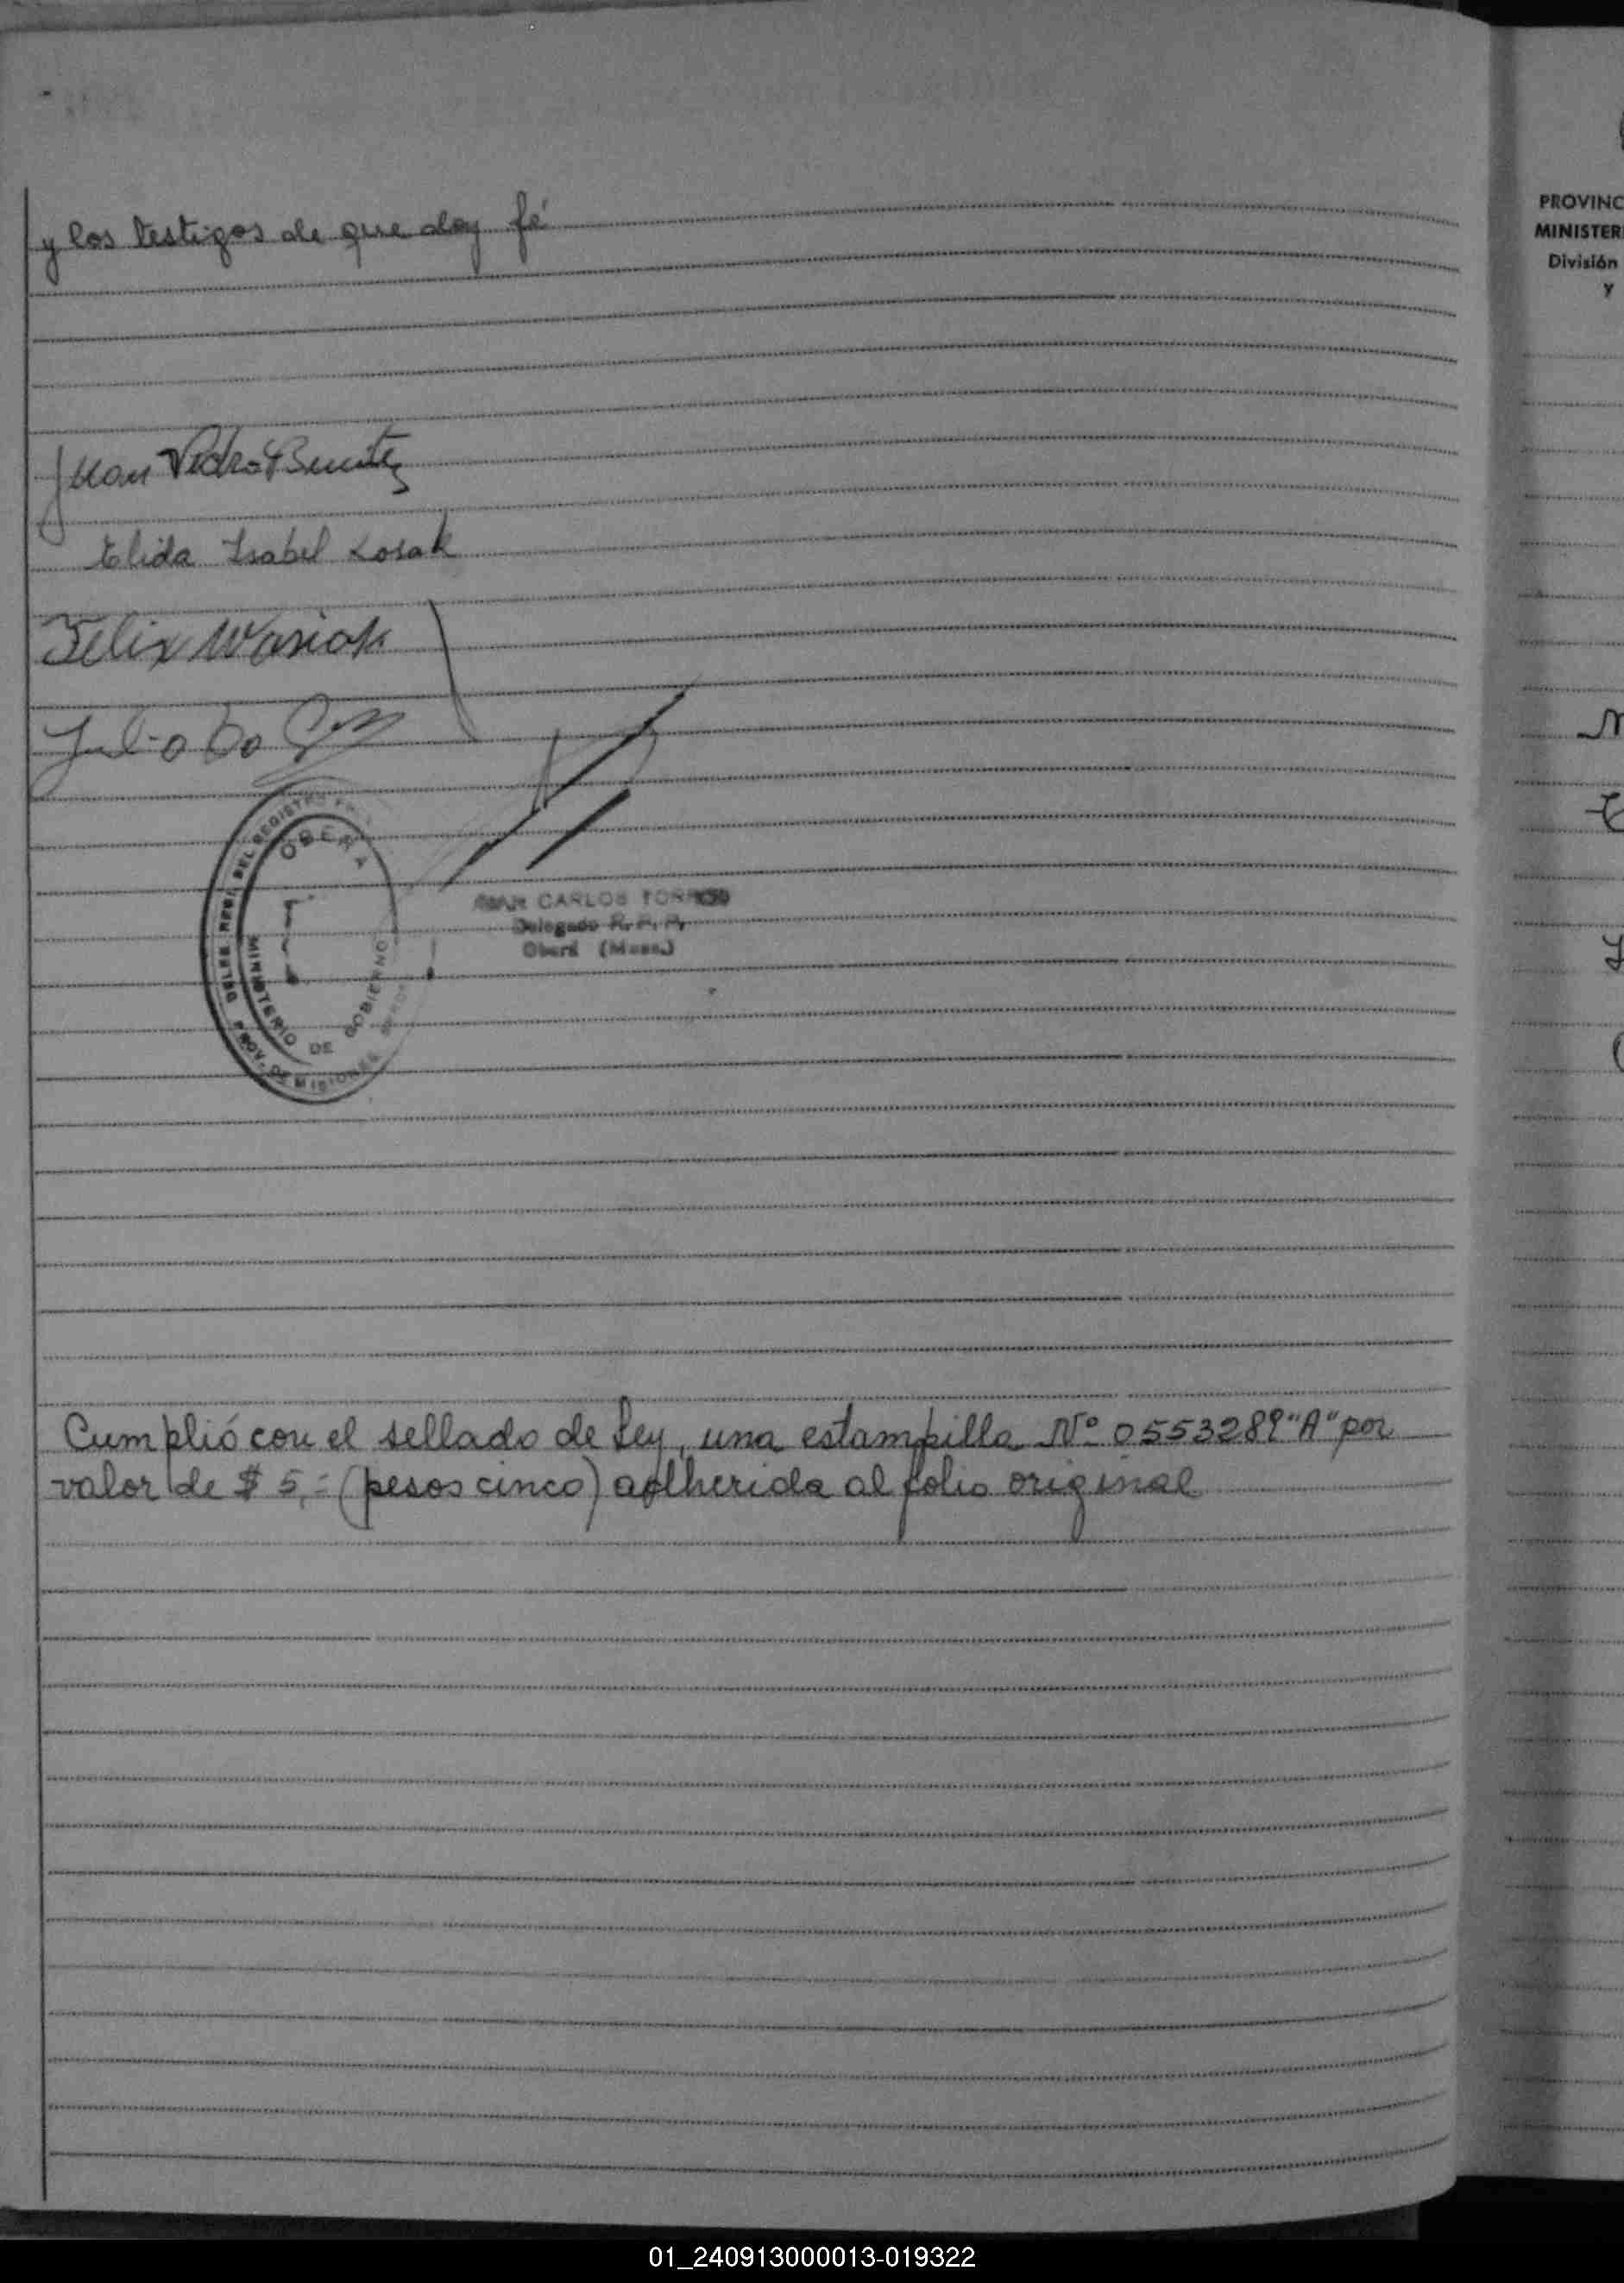 y los testigos de que doy fé
Juan Pedro Benitez
Elida Isabel Kosak
Felix Wasiok
Julio
OBERA
MINISTERIO DE GOBIERNO
PROV. DE MISIONES
CARLOS TORRES
Delegado R. P. P.
Oberá (Mnes.)
Cumplió con el sellado de Ley, una estampilla Nº 0553289 "A" por
valor de $ 5,= (pesos cinco) adherida al folio original
PROVINC
MINISTER
División
y
01_240913000013-019322